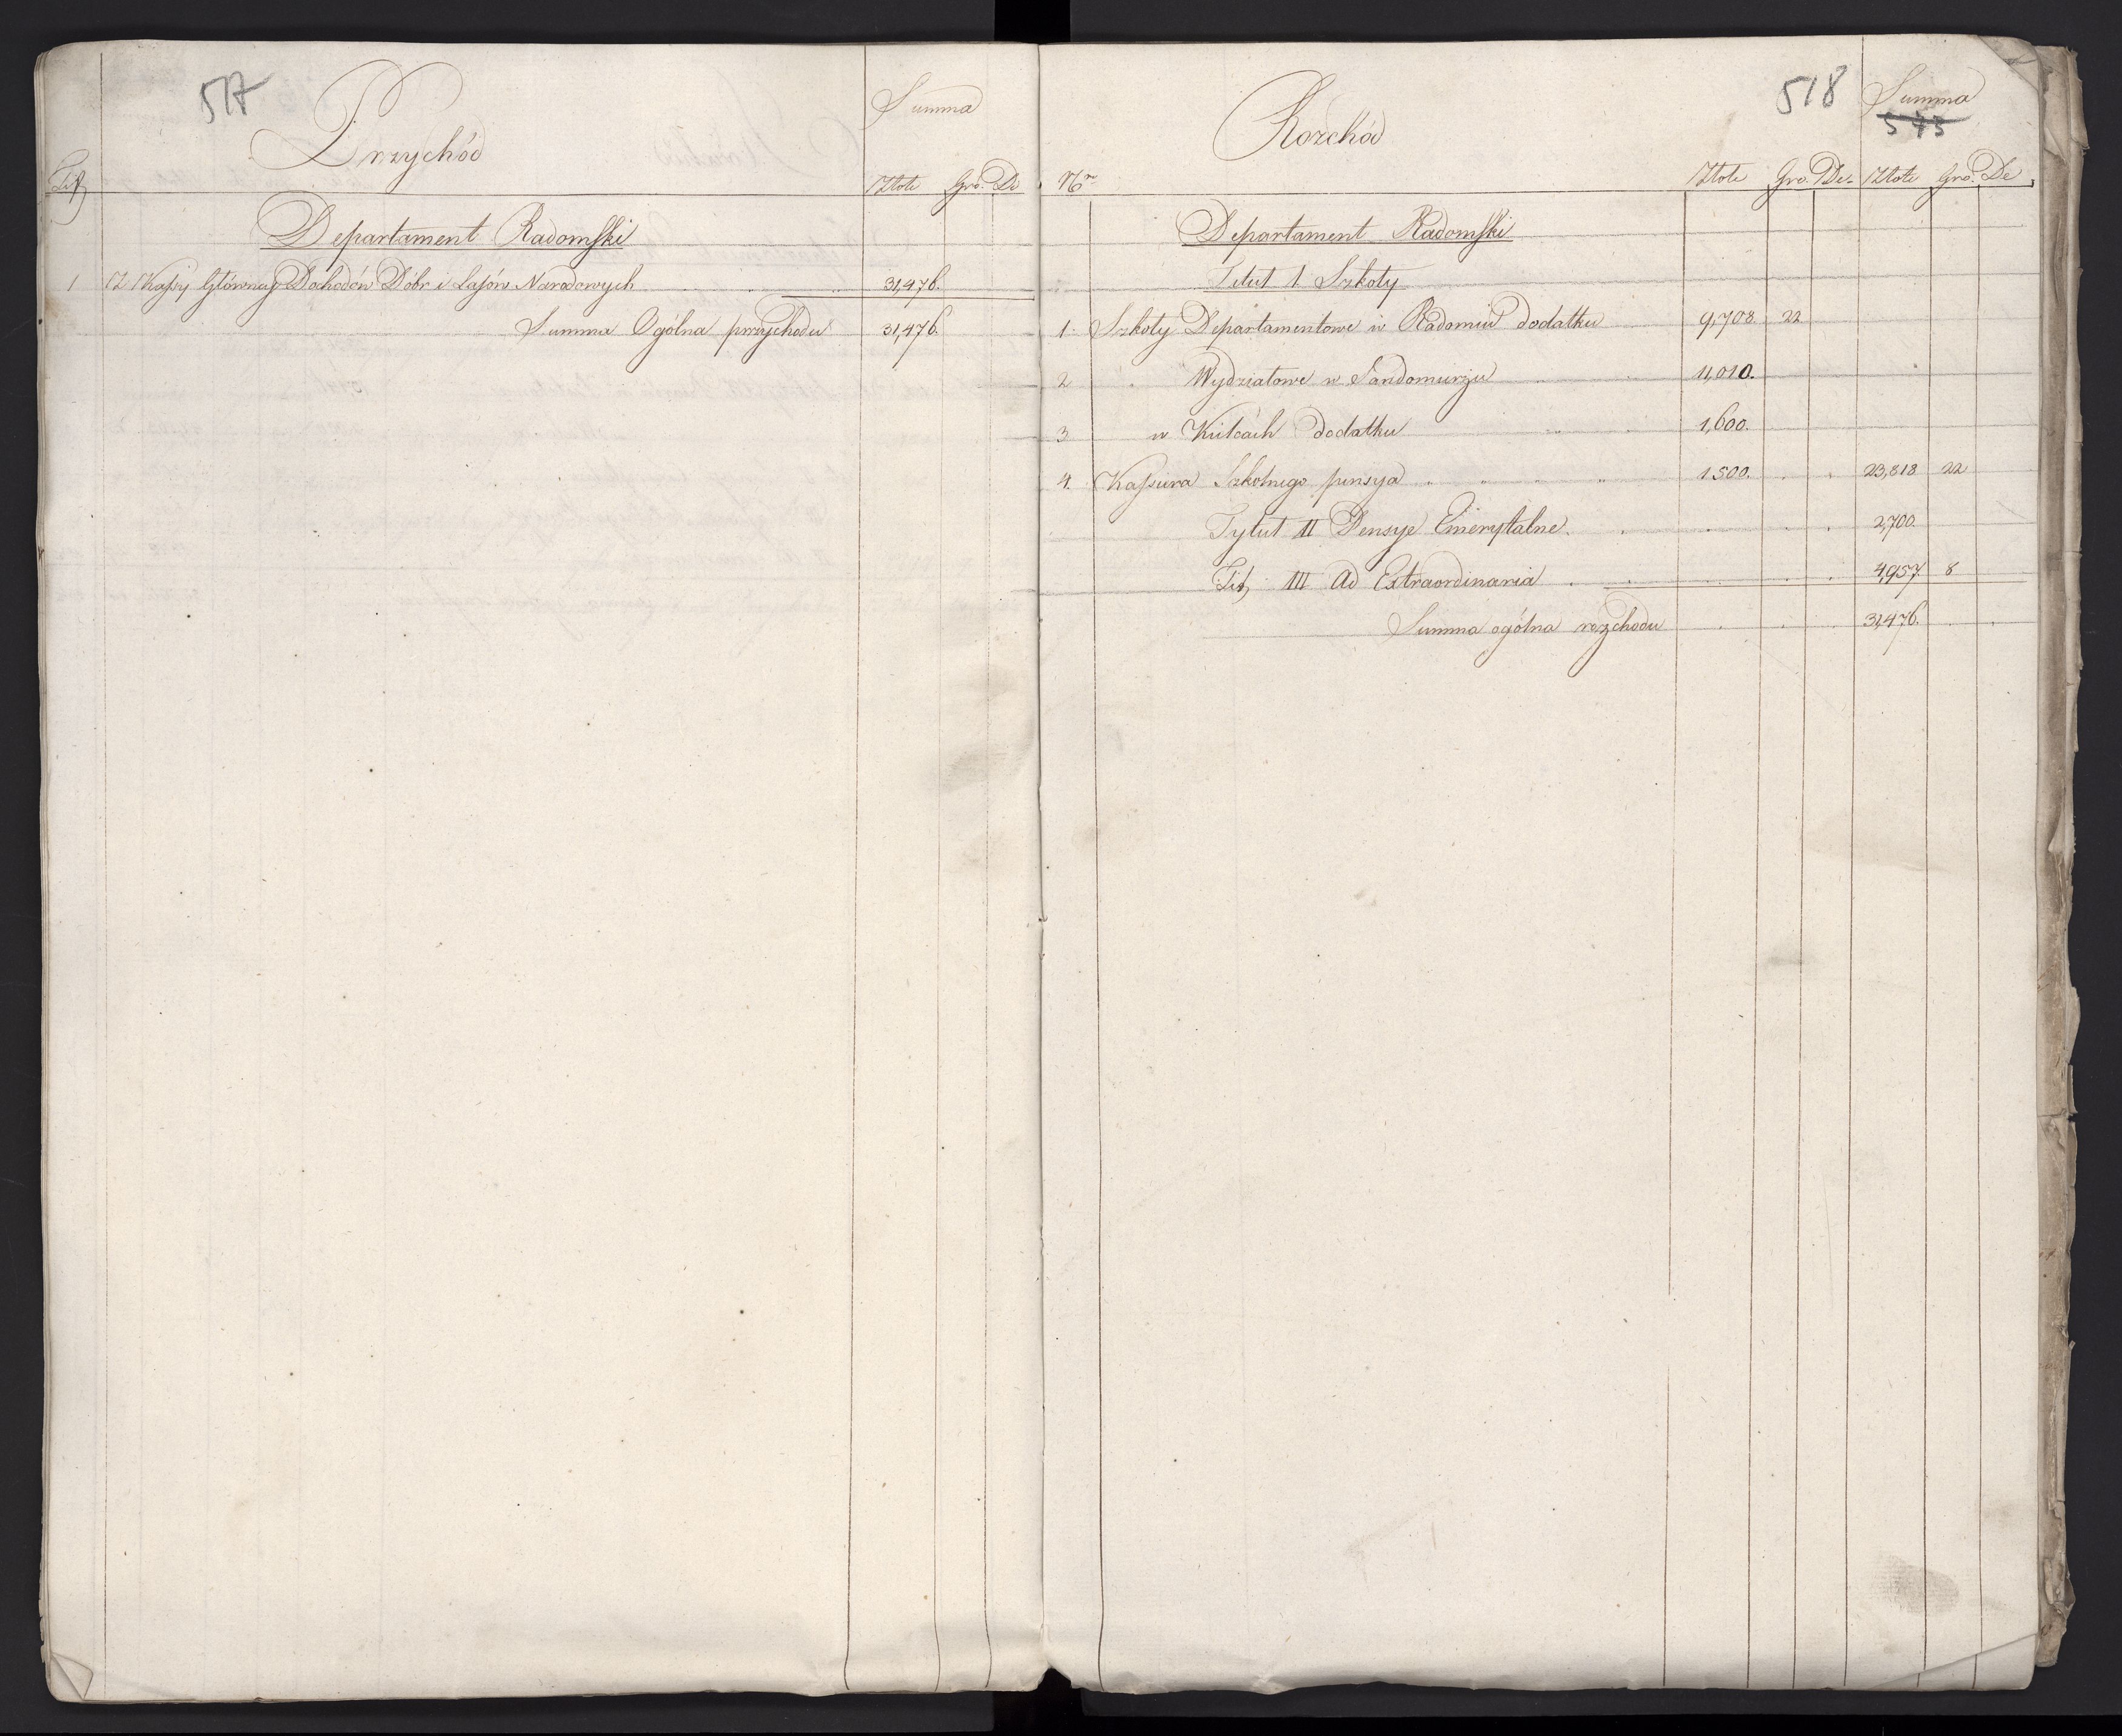 517
Przychód
Summa
Tit
Złote Gro. De
Departament Radomski
1 Z Kassy Główney Dochodów Dóbr i Lasów Narodowych 31,476.
Summa Ogólna przychodu 31,476.
518
Rozchód
Summa
543
Nro
Złote Gro. De. Złote Gro. De
Departament Radomski
Titut 1. Szkoły
1. Szkoły Departamentowe w Radomiu dodatku 9,708. 22
2 " Wydziałowe w Sandomierzu 11,010.
3 w Kielcach dodatku 1,600.
4. Kassiera Szkolnego pensya 1500. 23,818 22
Tytuł II Pensye Emerytalne. 2,700.
Tit, III Ad Extraordinaria 4,957. 8
Summa ogólna rozchodu 31,476.